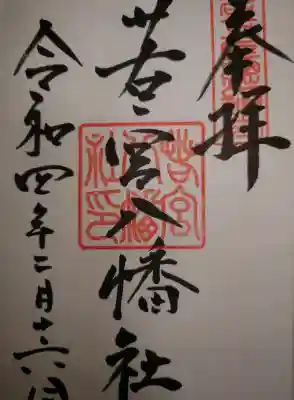 奉拝
若宮八幡社
若宮八幡社印
令和四年二月十六日